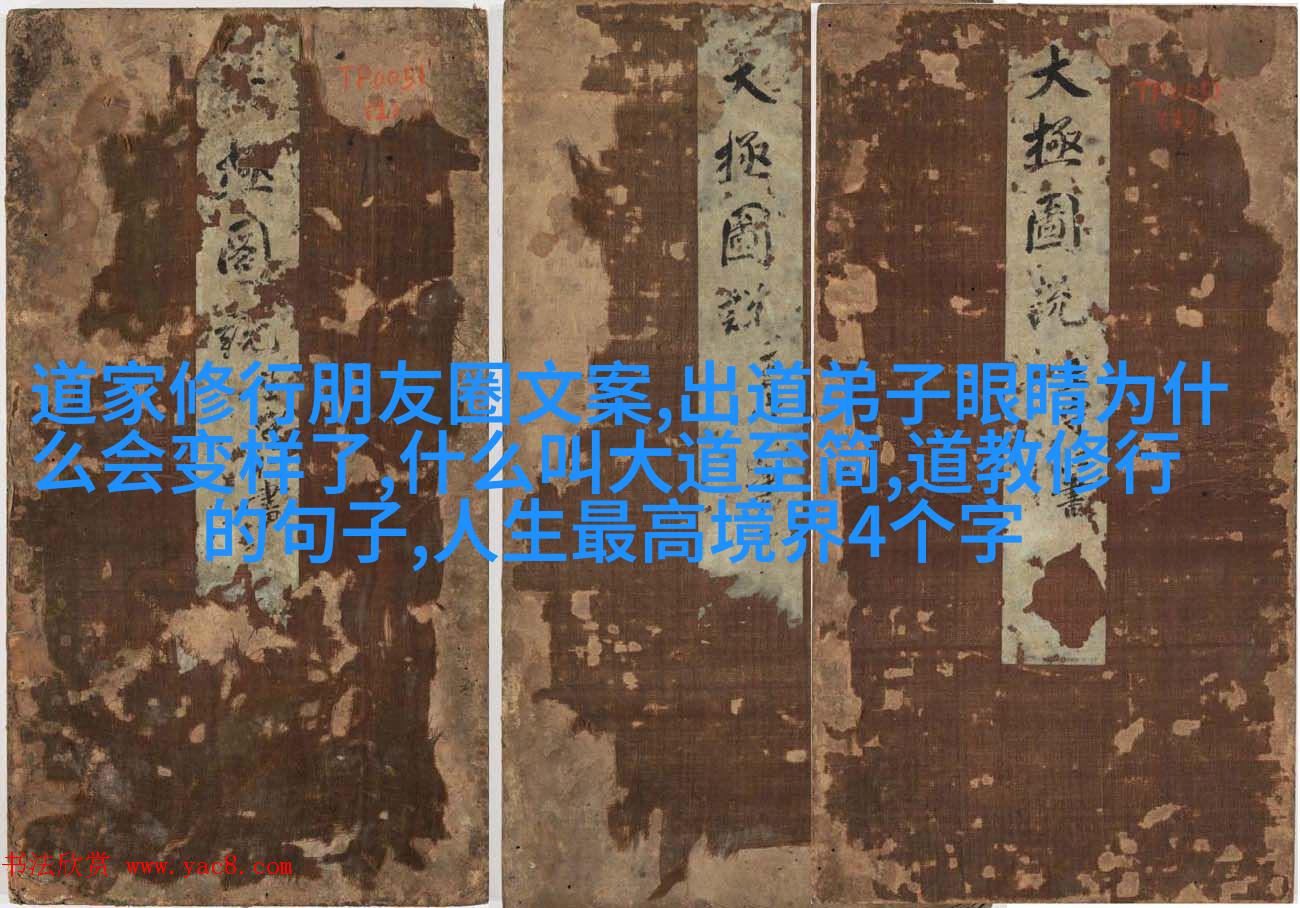 TP0051
(1)
極
圖
說
書
大
極
圖
說
大
極
圖
说
書
道家修行朋友圈文案,出道弟子眼睛为什
么会变样了,什么叫大道至简,道教修行
的句子,人生最高境界4个字
书法欣赏 www.yac8.com